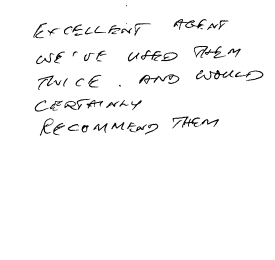 EXCELLENT AGENT
WE'VE USED THEM
TWICE. AND WOULD
CERTAINLY
RECOMMEND THEM